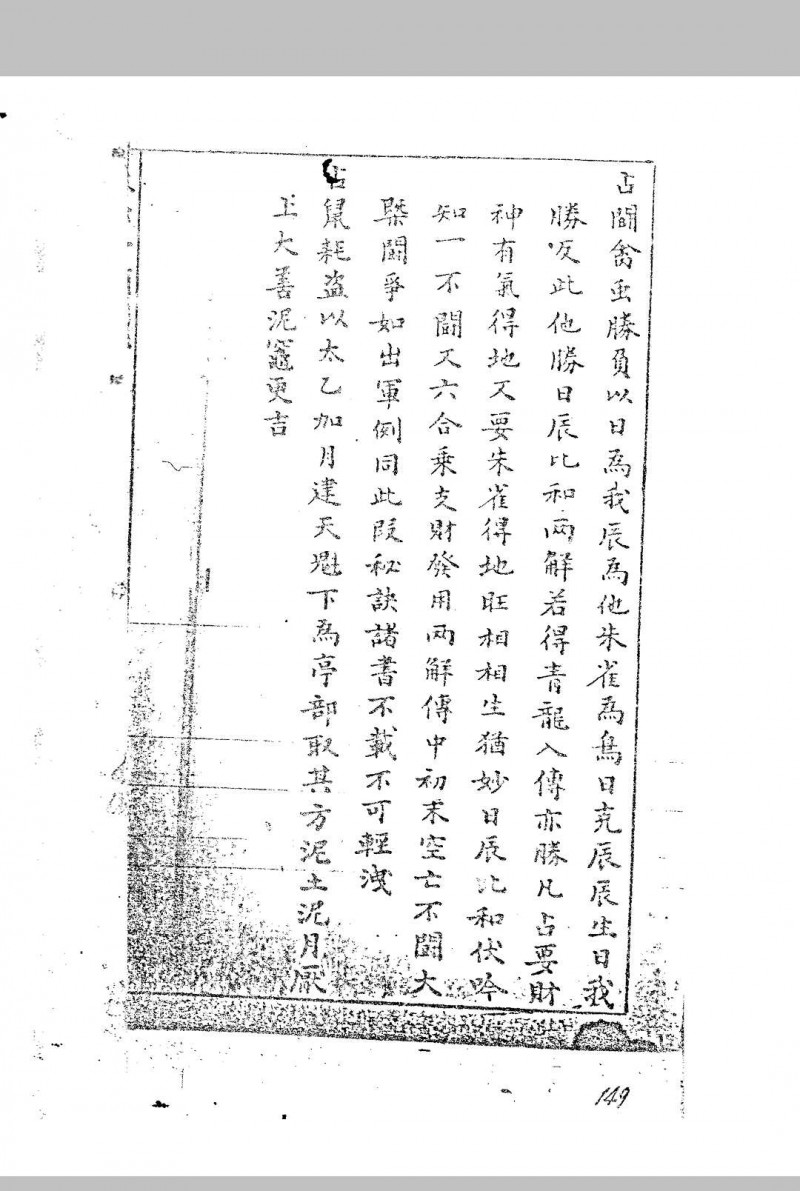 占鬪禽虫勝負以日為我辰為他朱雀為鳥日克辰辰生日我
勝反此他勝日辰比和兩解若得青龍入傳亦勝凡占要財
神有氣得地又要朱雀得地旺相相生猶妙日辰比和伏吟
知一不鬪又六合乘支財發用兩解傳中初末空亡不鬪大
槩鬪爭如出軍例同此段秘訣諸書不載不可輕洩
占鼠耗盗以太乙加月建天魁下為亭部取其方泥土泥月厭
上大善泥竈更吉
149